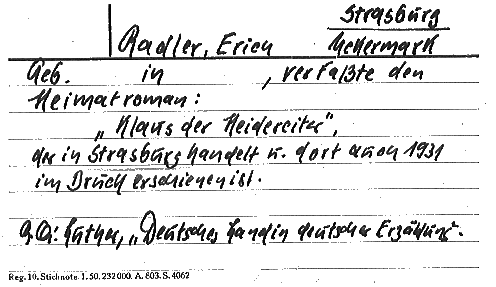 Strasburg
Radler, Erich Uckermark
Geb. in , verfaßte den
Heimatroman:
„Klaus der Heidereiter",
der in Strasburg handelt u. dort auch 1931
im Druck erschienen ist.
Luther, „Deutsches Land in deutscher Erzählung".
Reg. 10. Stichnote. 1. 50. 232000. A. 803. S. 4062